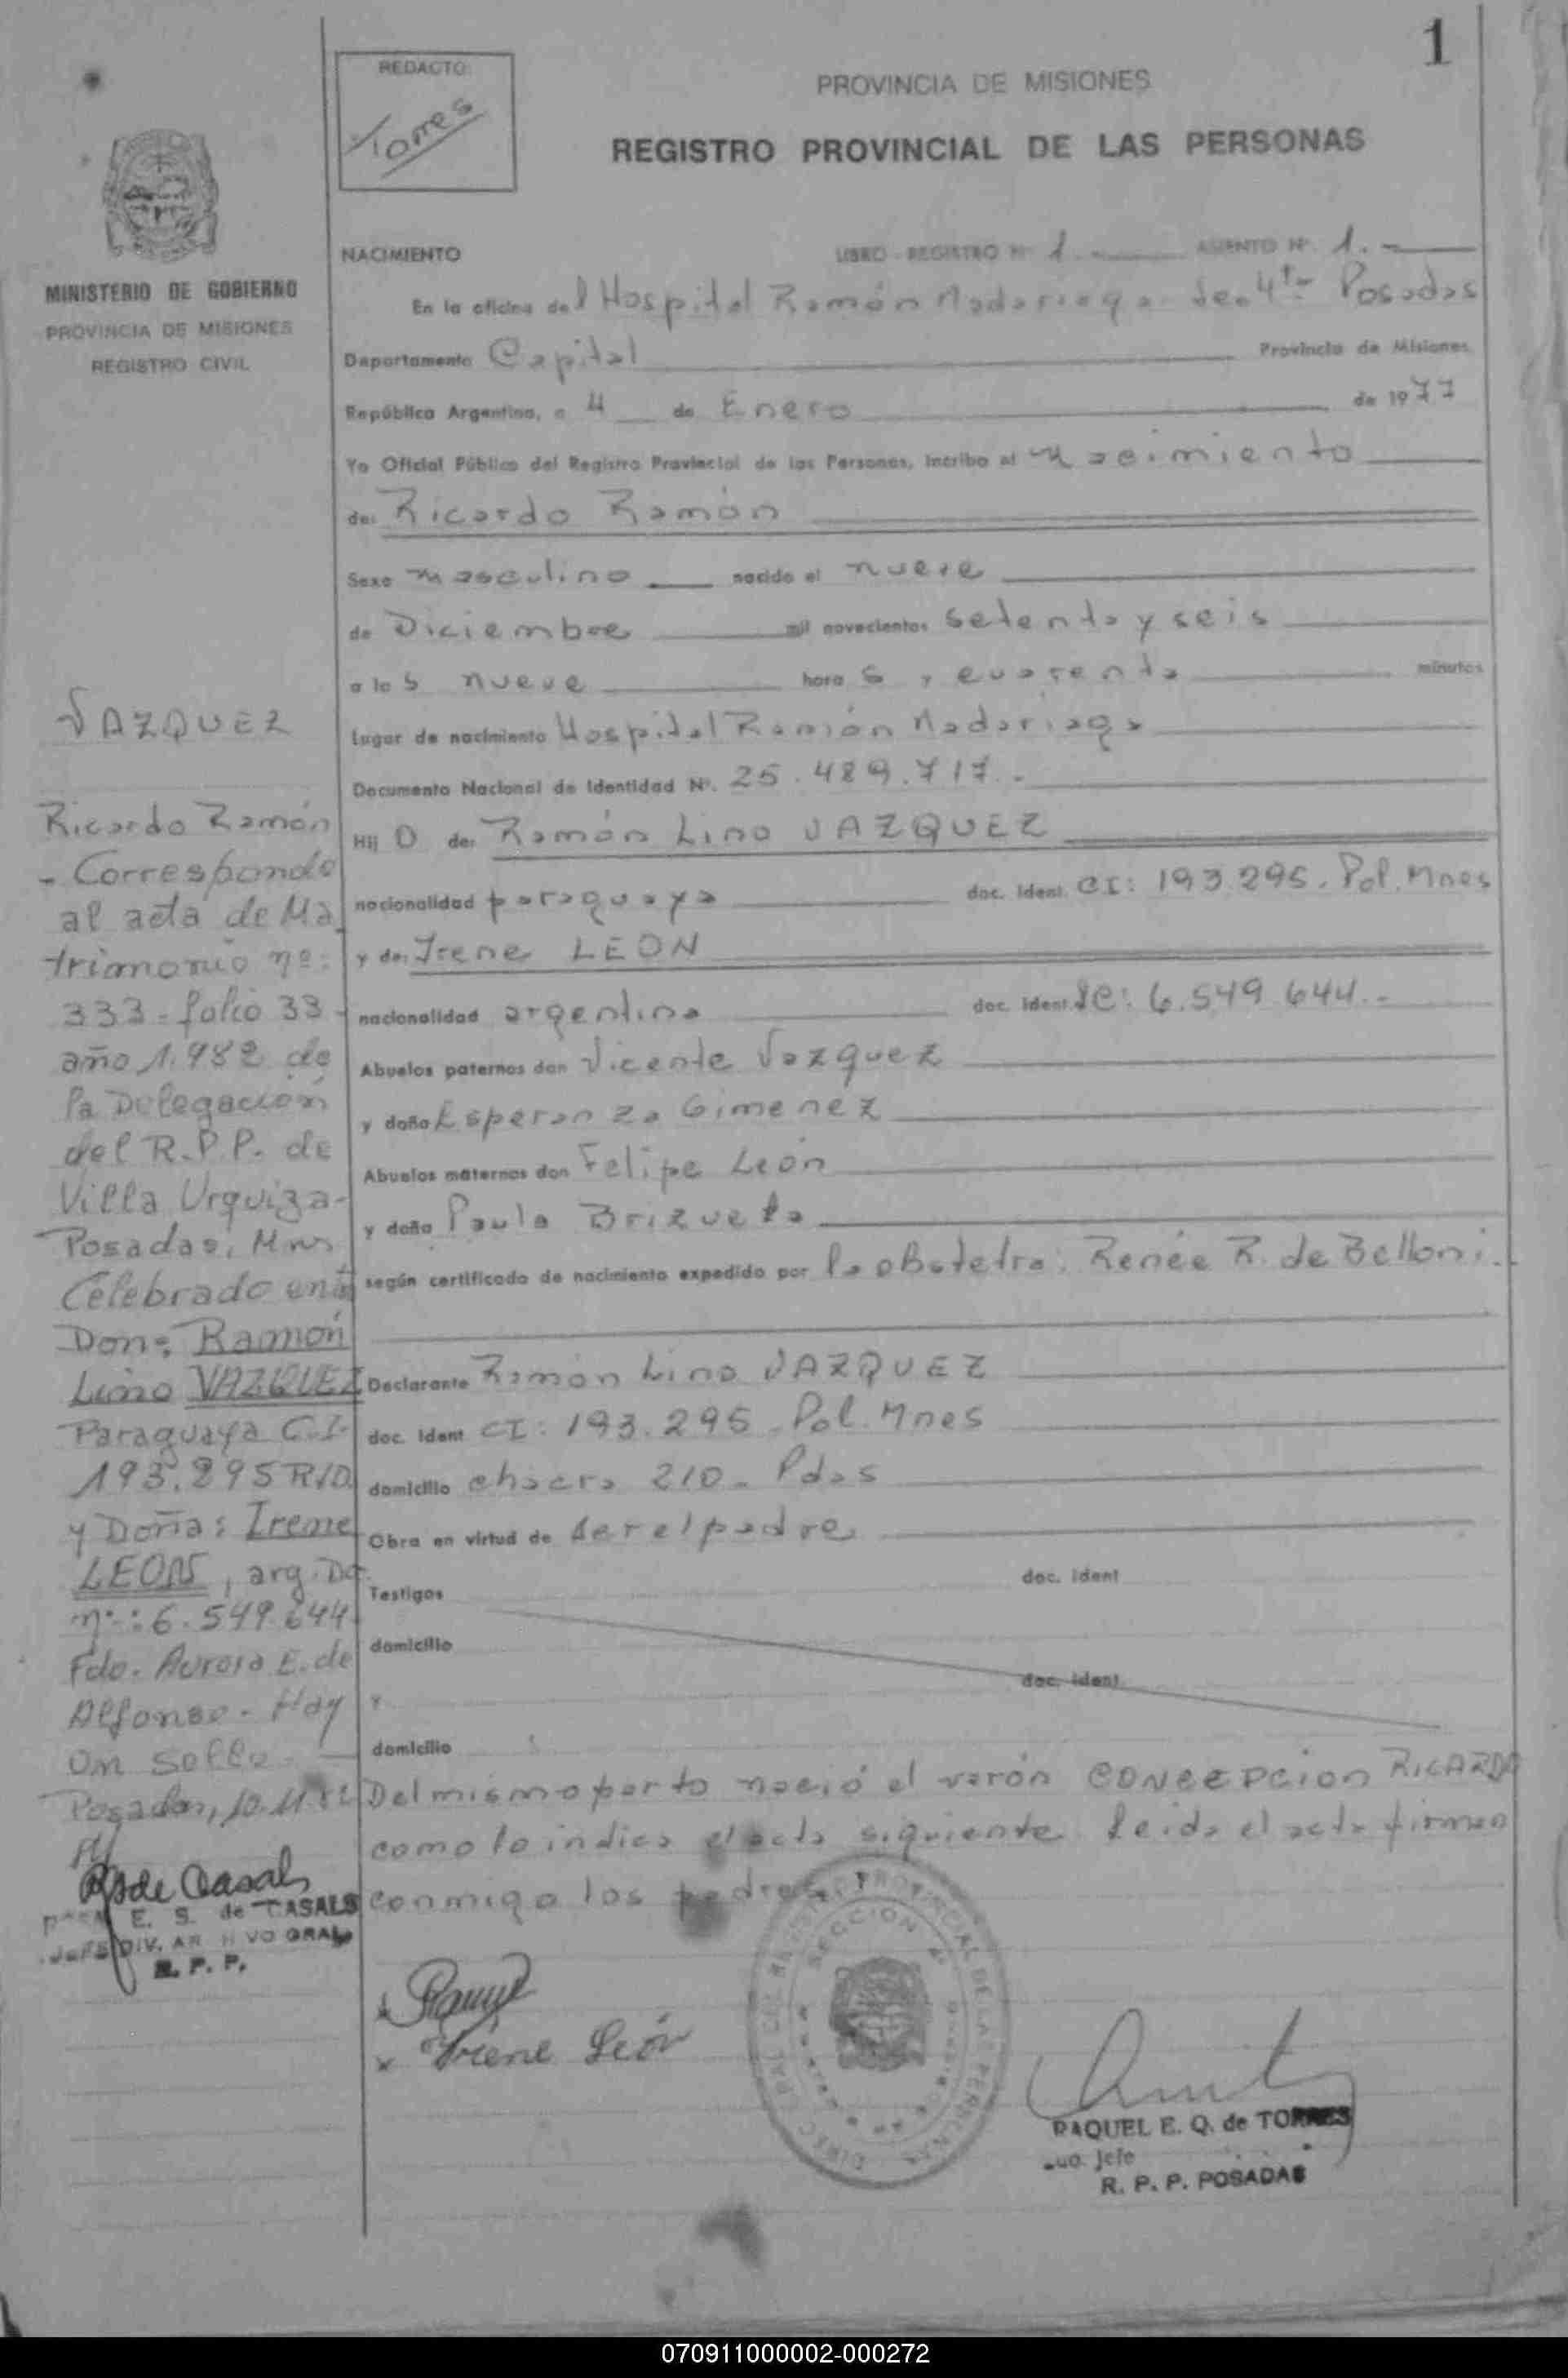 1
REDACTO:
Torres
PROVINCIA DE MISIONES
REGISTRO PROVINCIAL DE LAS PERSONAS
MINISTERIO DE GOBIERNO
PROVINCIA DE MISIONES
REGISTRO CIVIL
NACIMIENTO LIBRO - REGISTRO Nº 1. ASIENTO Nº. 1.-
En la oficina del Hospital Ramón Madariaga Posadas
Departamento Capital Provincia de Misiones
República Argentina, a 4 de Enero de 1977
Yo Oficial Público del Registro Provincial de las Personas, incribo el Nacimiento
de: Ricardo Ramón
Sexo masculino nacido el nueve
de Diciembre mil novecientos setenta y seis
a las nueve horas y cuarenta minutos
Lugar de nacimiento Hospital Ramón Madariaga
Documento Nacional de Identidad Nº. 25.489.717.-
Hij O de: Ramón Lino VAZQUEZ
nacionalidad paraguaya doc. ident. CI: 193.295. Pol. Mnes
y de: Irene LEON
nacionalidad argentina doc. ident. LC: 6.549.644.-
Abuelos paternos don Vicente Vazquez
y doña Esperanza Gimenez
Abuelos maternos don Felipe León
y doña Paula Brizuela
según certificado de nacimiento expedido por la obstetra: Renée R. de Belloni.
Declarante Ramón Lino VAZQUEZ
doc. ident CI: 193.295. Pol. Mnes
domicilio chacra 210. Pdas
Obra en virtud de ser el padre
Testigos doc. ident
domicilio
doc. ident.
y
domicilio
Del mismo parto nació el varón CONCEPCION RICARDO
como lo indica el acta siguiente. Leida el acta firman
conmigo los padres.
Irene León
RAQUEL E. Q. de TORRES
Jefe
R. P. P. POSADAS
VAZQUEZ
Ricardo Ramón
- Corresponde
al acta de Ma
trimonio nº:
333 - folio 33
año 1.982 de
la Delegación
del R.P.P. de
Villa Urquiza-
Posadas, Mns
Celebrado
Don: Ramón
Lino VAZQUEZ
Paraguaya C.I.
193.295
y Doña: Irene
LEON, arg.
nº: 6.549.644
Fdo. Aurora E. de
Alfonso. Hay
un sello.
Posadas, 10.11.82
de Casals
E. S. de CASALS
JEFE DIV. ARCHIVO GRAL
R. P. P.
070911000002-000272